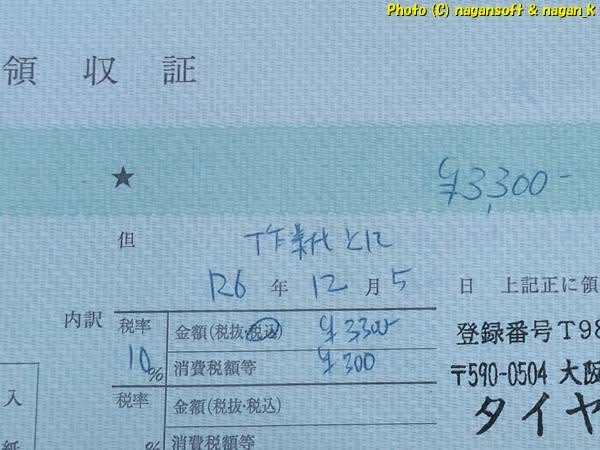 Photo (C) nagansoft & nagan_k
領収証
★ ¥3,300-
但 作業代として
R6年12月5日 上記正に領
内訳 税率 金額(税抜・税込) ¥3300- 登録番号T98
10% 消費税額等 ¥300 〒590-0504 大阪
税率 金額(税抜・税込) タイヤ
入 % 消費税額等
紙